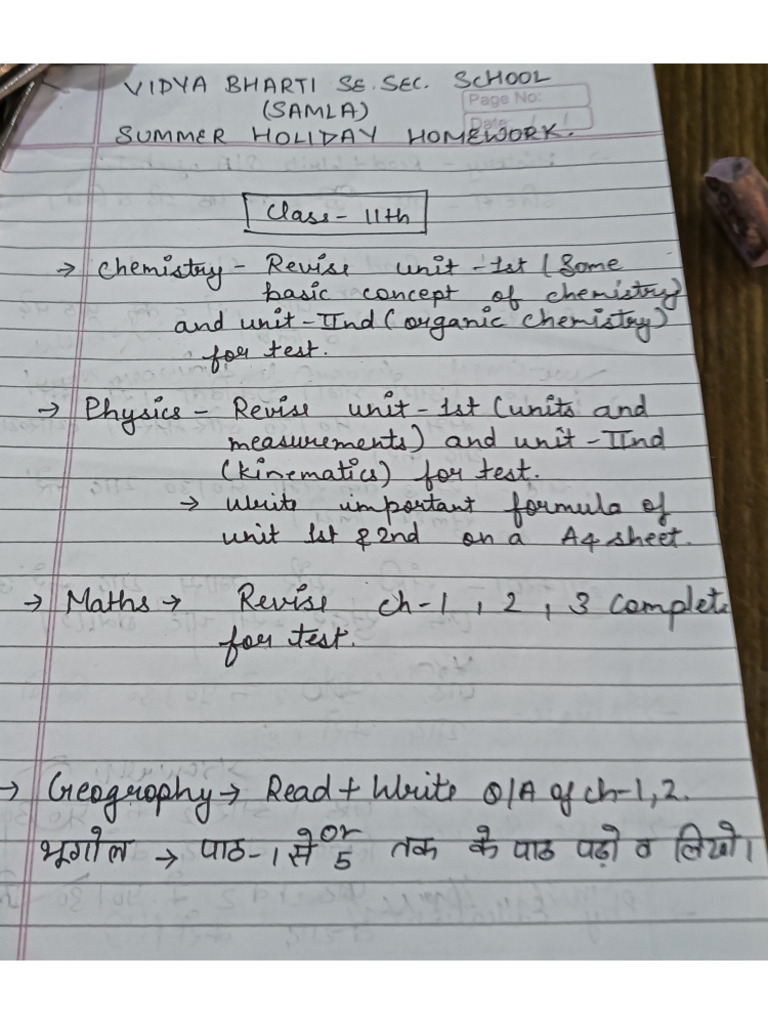 VIDYA BHARTI SE. SEC. SCHOOL
(SAMLA)
Page No:
Date
SUMMER HOLIDAY HOMEWORK.
Class - 11th
→ Chemistry - Revise unit - 1st (Some
basic concept of chemistry)
and unit - IInd (organic chemistry)
for test.
→ Physics - Revise unit - 1st (units and
measurements) and unit - IInd
(kinematics) for test.
→ Write important formula of
unit 1st & 2nd on a A4 sheet.
→ Maths → Revise ch-1, 2, 3 complete
for test.
→ Geography → Read + Write Q/A of ch-1, 2.
or
भूगोल → पाठ-1 से 5 तक के पाठ पढ़ो व लिखो।